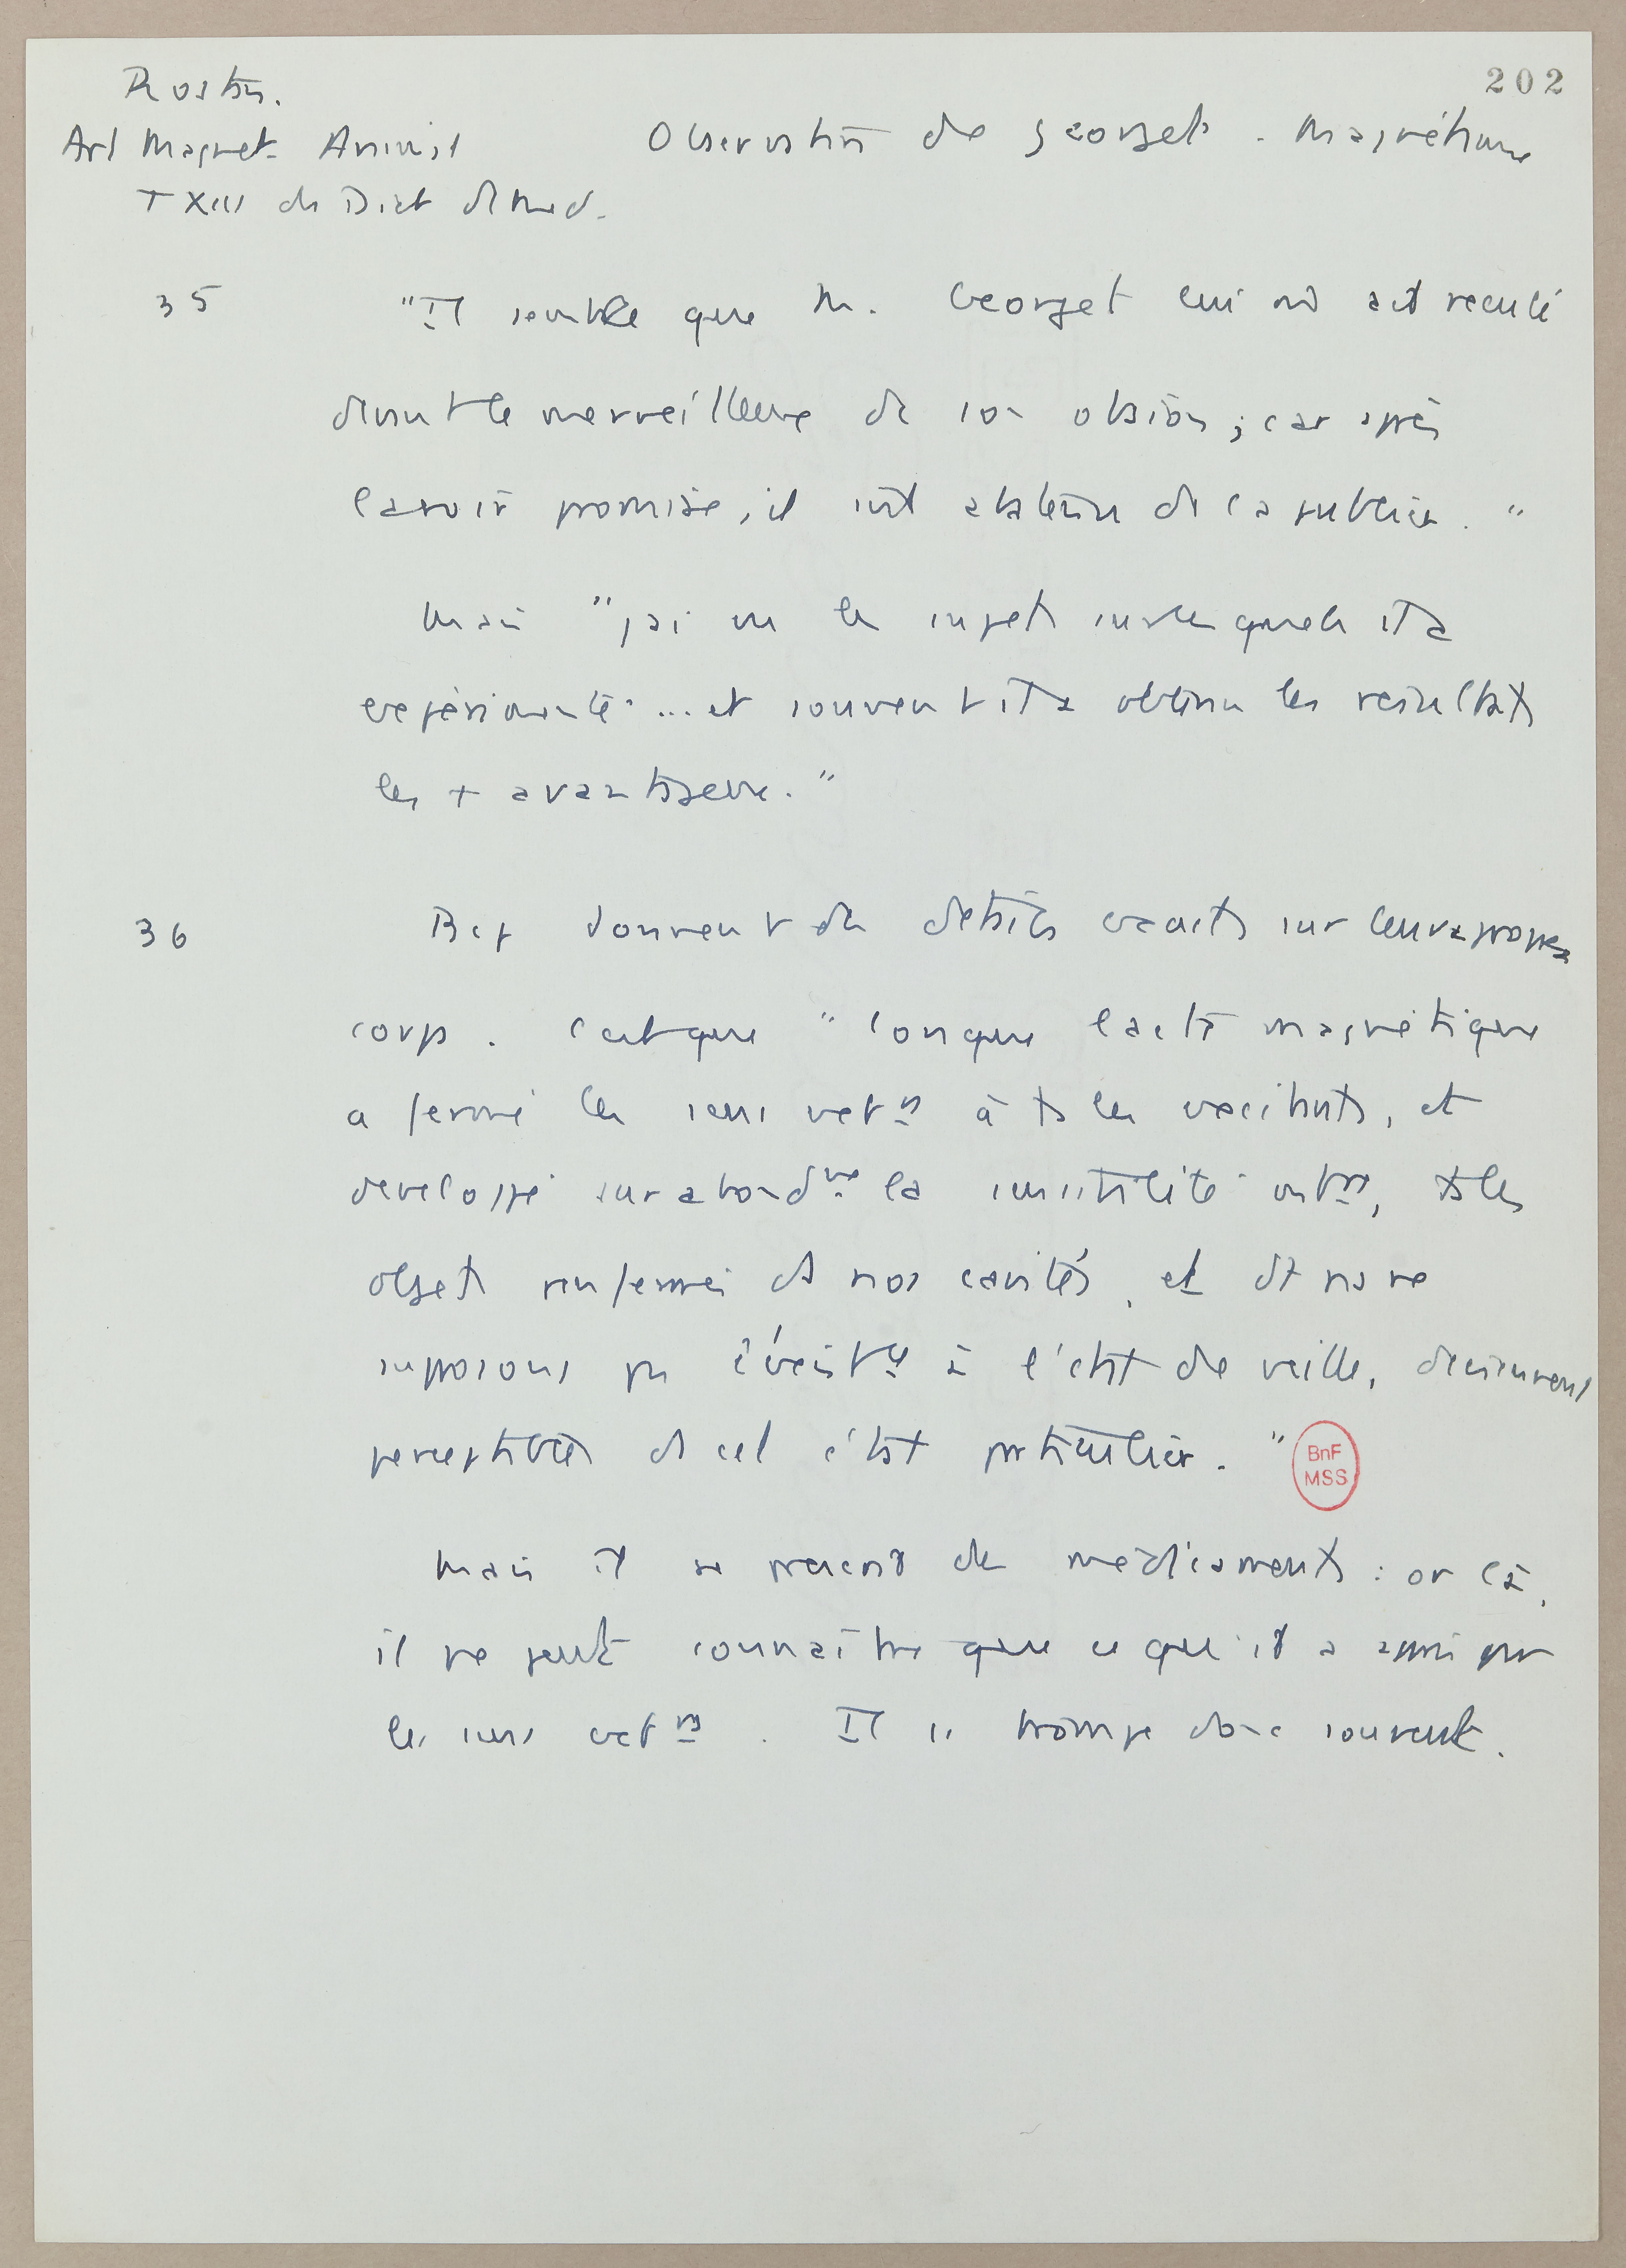 202
Rostan.
Art Magnet. Animal
T XIII du Dict de Med.
Observation de Georget. Magnétisme
35
"Il semble que M. Georget lui m̂ ait reculé
devant le merveilleux de son obsion ; car après
l'avoir promise, il s'est abstenu de la publier. "
Mais "j'ai vu les sujets sur lesquels il a
expérimenté ... et souvent il a obtenu les résultats
les + avantageux. "
36
Bcp donnent des détails exacts sur leurs propres
corps. C'est que "lorsque l'acte magnétique
a fermé les sens extrs à ts les excitants, et
développé surabondt la sensibilité intre, ts les
objets renfermés ds nos cavités, et dt ns ne
supposons pas l'existce à l'état de veille, deviennent
perceptibles ds cet état particulier. "
BnF
MSS
Mais il se prescrit des médicaments : or là,
il ne peut connaître que ce qu'il a appris par
les sens extrs . Il se trompe donc souvent.